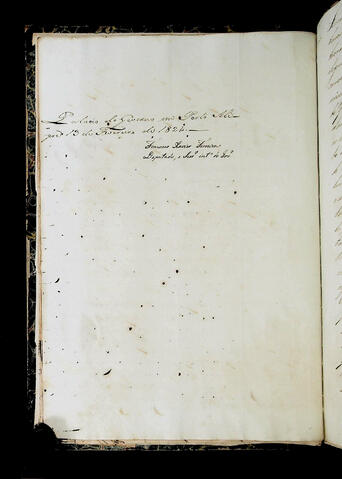 Palacio do Governo em Porto Ale-
gre 13 de Fevereiro de 1824.
Francisco Xavier Ferreira
Deputado, e Secr.º int.º do Gov.º